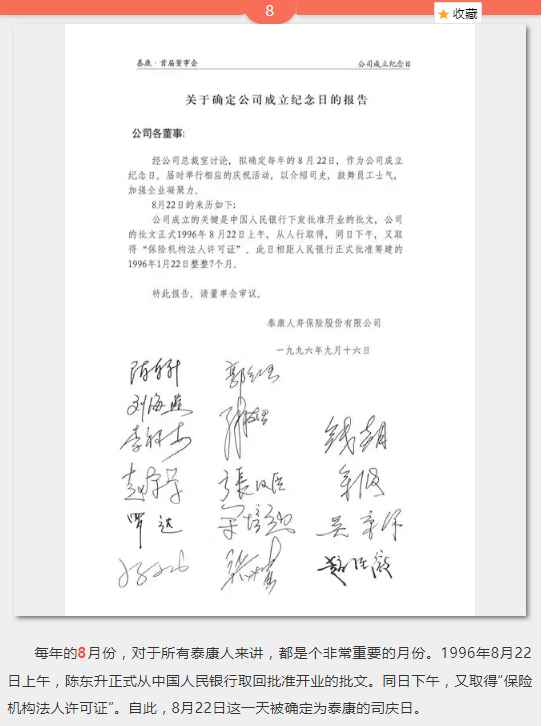 8
收藏
泰康·首届董事会 公司成立纪念日
关于确定公司成立纪念日的报告
公司各董事:
经公司总裁室讨论，拟确定每年的 8 月 22日，作为公司成立
纪念日，届时举行相应的庆祝活动，以介绍司史，鼓舞员工士气，
加强企业凝聚力。
8月22日的来历如下:
公司成立的关键是中国人民银行下发批准开业的批文，公司
的批文正式1996年 8月22日上午，从人行取得，同日下午，又取
得“保险机构法人许可证”。此日相距人民银行正式批准筹建的
1996年1月22日整整7个月。
特此报告，请董事会审议。
泰康人寿保险股份有限公司
一九九六年九月十六日
陈东升
刘海燕
罗达
每年的8月份，对于所有泰康人来讲，都是个非常重要的月份。1996年8月22
日上午，陈东升正式从中国人民银行取回批准开业的批文。同日下午，又取得“保险
机构法人许可证”。自此，8月22日这一天被确定为泰康的司庆日。